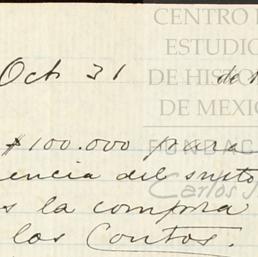 CENTRO
ESTUDIO
DE HISTO
DE MEXIC
FUNDAC
Carlos
Oct 31 de
$100.000 para
encia del susto
s la compra
los Contos.